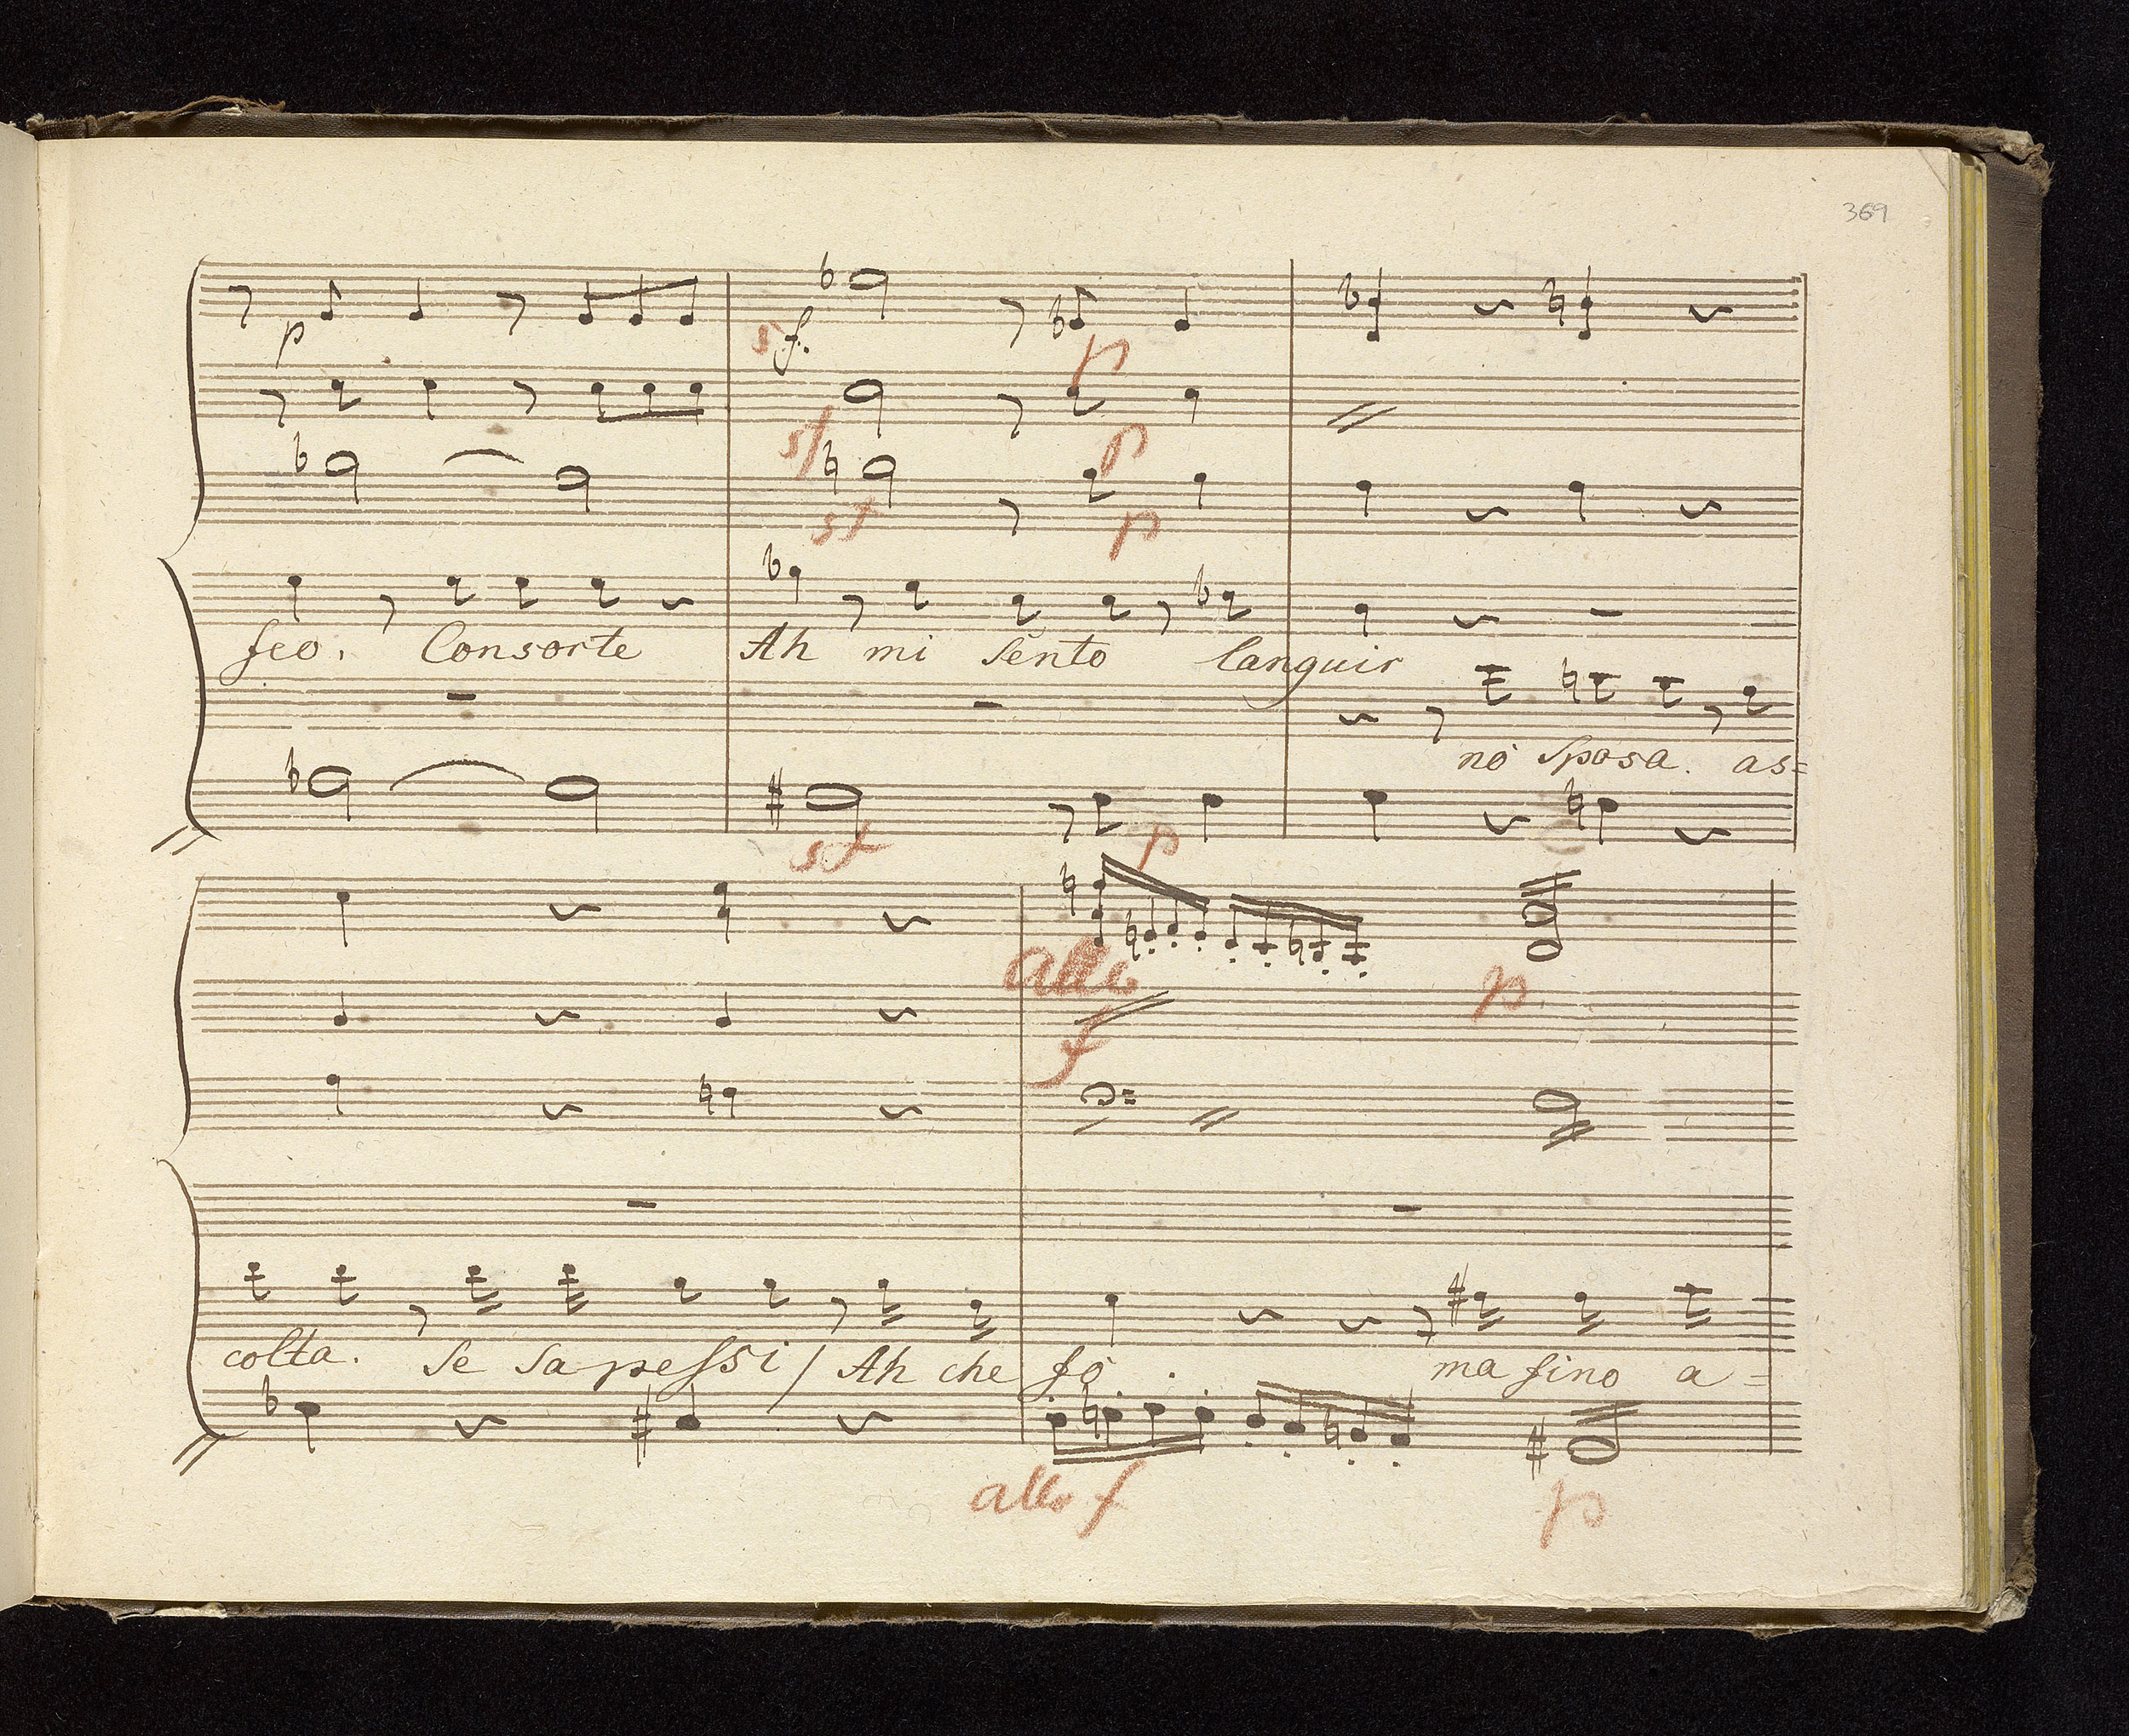 369
p sf. p
sf p
sf p
feo. Consorte Ah mi sento languir
nò Sposa. as=
sf p
allo p
f
colta. Se Sapessi / Ah che fò. ma fino a=
allo f p